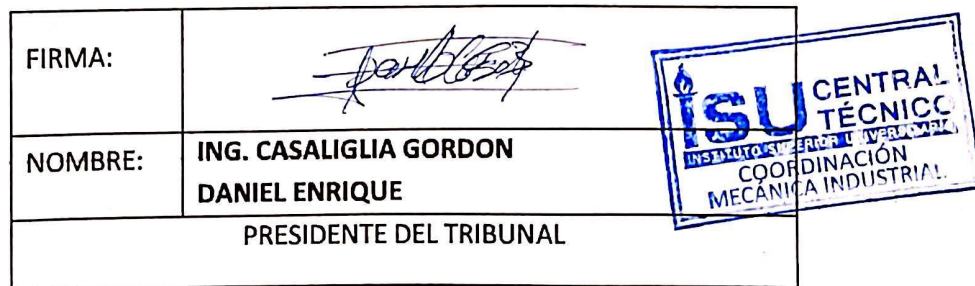 FIRMA:
NOMBRE:
ING. CASALIGLIA GORDON
DANIEL ENRIQUE
PRESIDENTE DEL TRIBUNAL
ISU CENTRAL
TÉCNICO
INSTITUTO SUPERIOR UNIVERSITARIO
COORDINACIÓN
MECÁNICA INDUSTRIAL